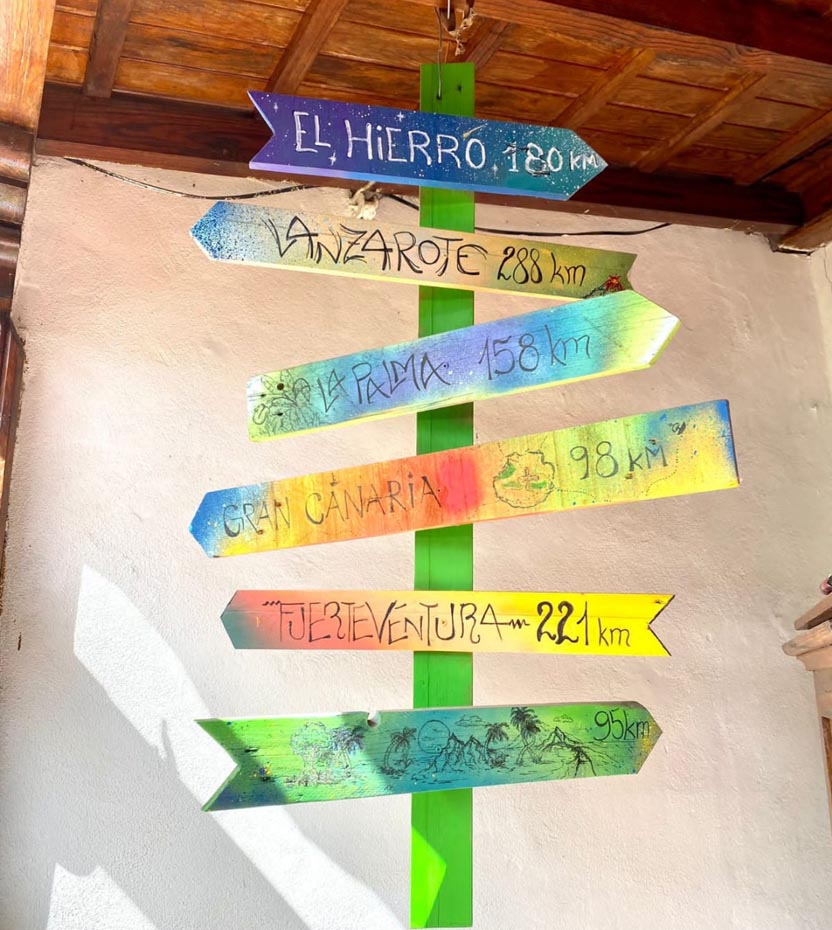 EL HiERRO 180 KM
LANZAROTE 288 km
LA PALMA 158 km
GRAN CANARiA 98 KM
FUERTEVENTURA 221 km
95km